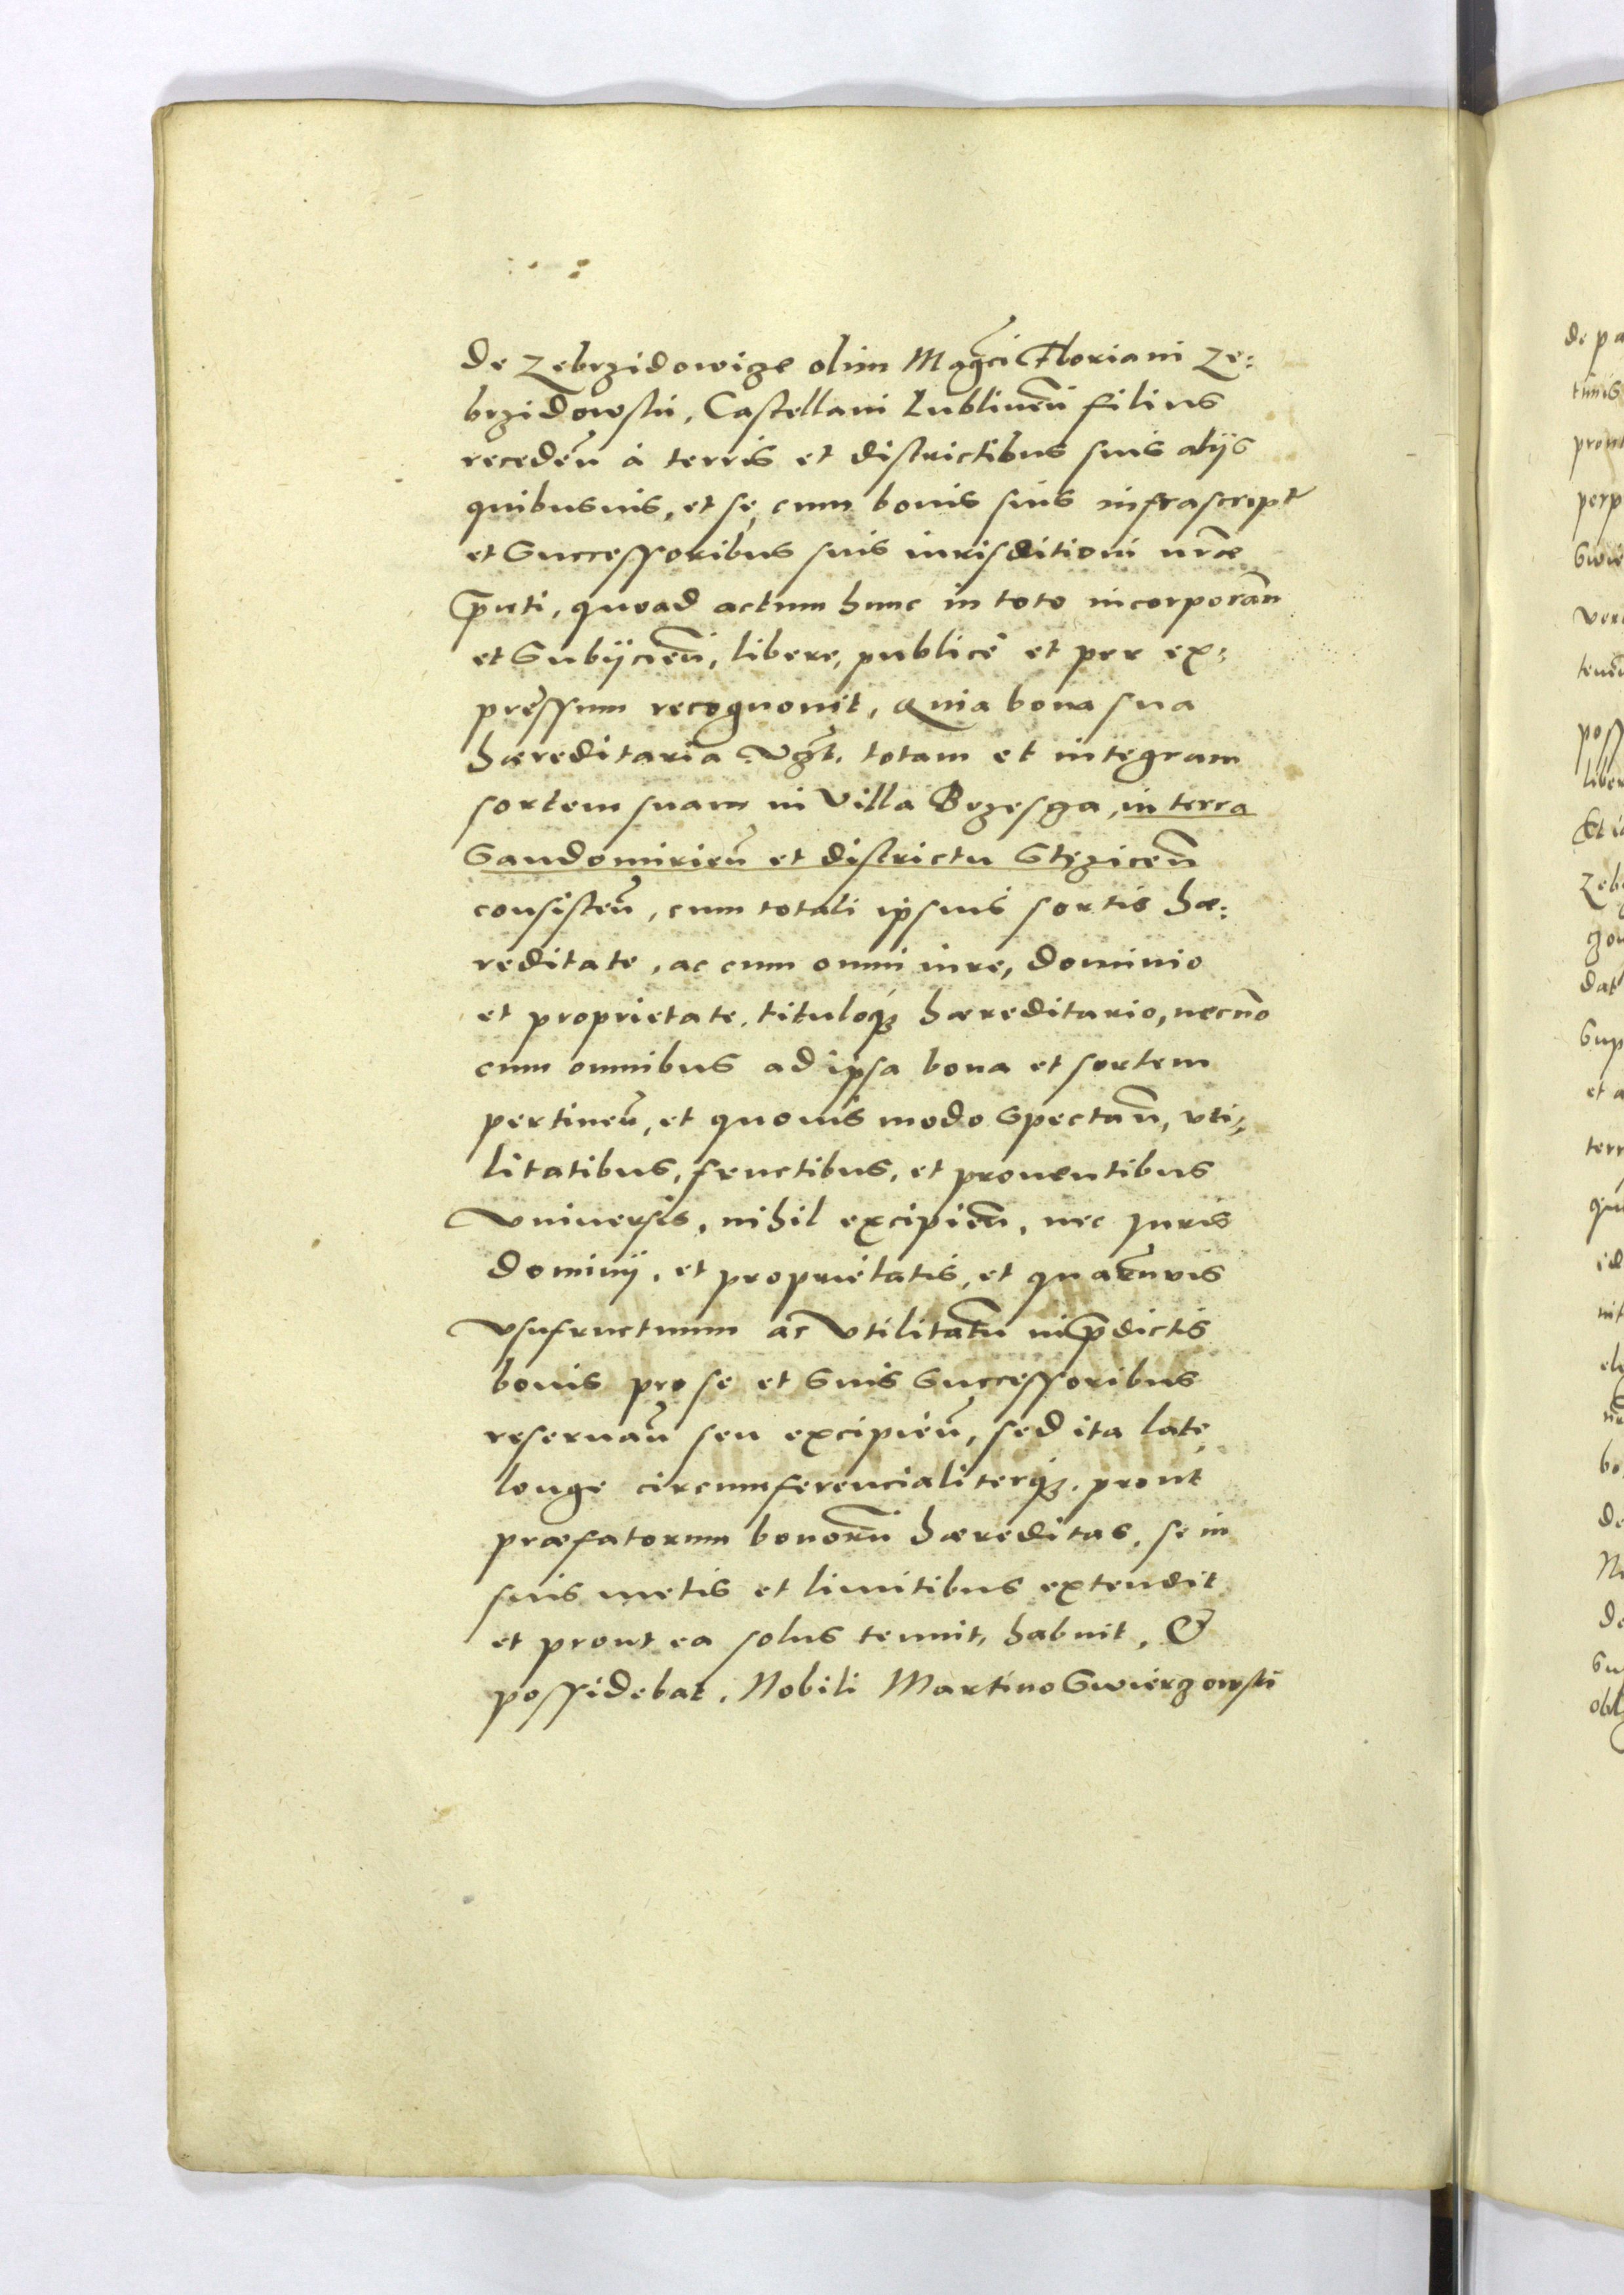 de Zebrzidowize olim Mag̃ci Floriani Ze:
brzidowski, Castellani Lublineñ filius
recedeñ à terris et districtibus suis alijs
quibusuis, et se, cum bonis suis infrascript
et Successoribus suis iurisditioni nrãe
p̃nti, quoad actum hunc in toto incorporañ
et Subijcieñ, libere, publicè et per ex:
pressum recognouit, Quia bona sua
hæreditaria vg̃t. totam et integram
sortem suam in Villa Brzesza, in terra
Sandomirieñ et districtu Stęziceñ
consisteñ, cum totali ipsius sortis hæ:
reditate, ac cum omni iure, dominio
et proprietate, tituloq3 hæreditario, necnõ
cum omnibus ad ipsa bona et sortem
pertineñ, et quouis modo Spectañ, vti:
litatibus, fructibus, et prouentibus
vniuersis, nihil excipieñ, nec Juris
dominij, et proprietatis, et quarũuis
vsufructuum ac vtilitatũ in p̃dictis
bonis pro se et Suis Successoribus
reseruañ seu excipieñ, sed ita late,
longe circumferencialiterq3. prout
præfatorum bonorũ hæreditas, se in
suis metis et limitibus extendit
et prout ea solus tenuit, habuit, &
possidebat, Nobili Martino Swierzowski
de pa